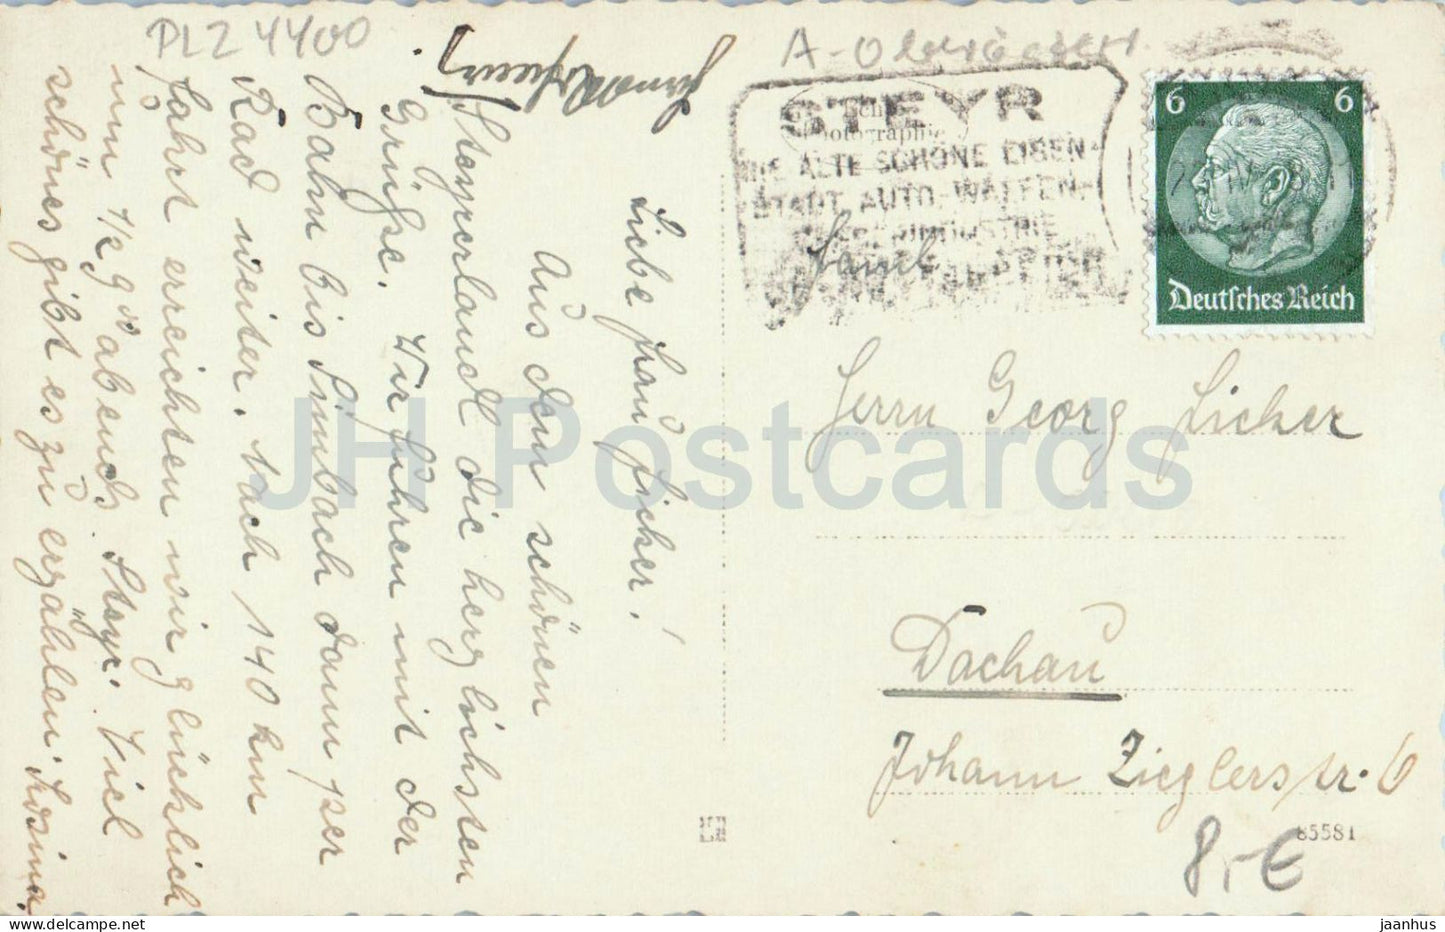 PLZ 4400
A-Oberösterr.
STEYR
DIE ALTE SCHÖNE EISEN-
STADT, AUTO-WAFFEN-
INDUSTRIE
6 6
Deutsches Reich
Echte
Photographie
Liebe Frau Licker!
Aus dem schönen
Steyrerland die herzlichsten
Grüsse. Wir fuhren mit der
Bahn bis Simbach dann per
Rad weiter. Nach 140 km
Fahrt erreichten wir glücklich
um ½ 9 00 abends Steyr. Viel
schönes gibt es zu erzählen. Rosina.
Familie
Herrn Georg Licker
Dachau
Johann Zieglerstr. 6
85581
8,- €
JH Postcards
jaanhus